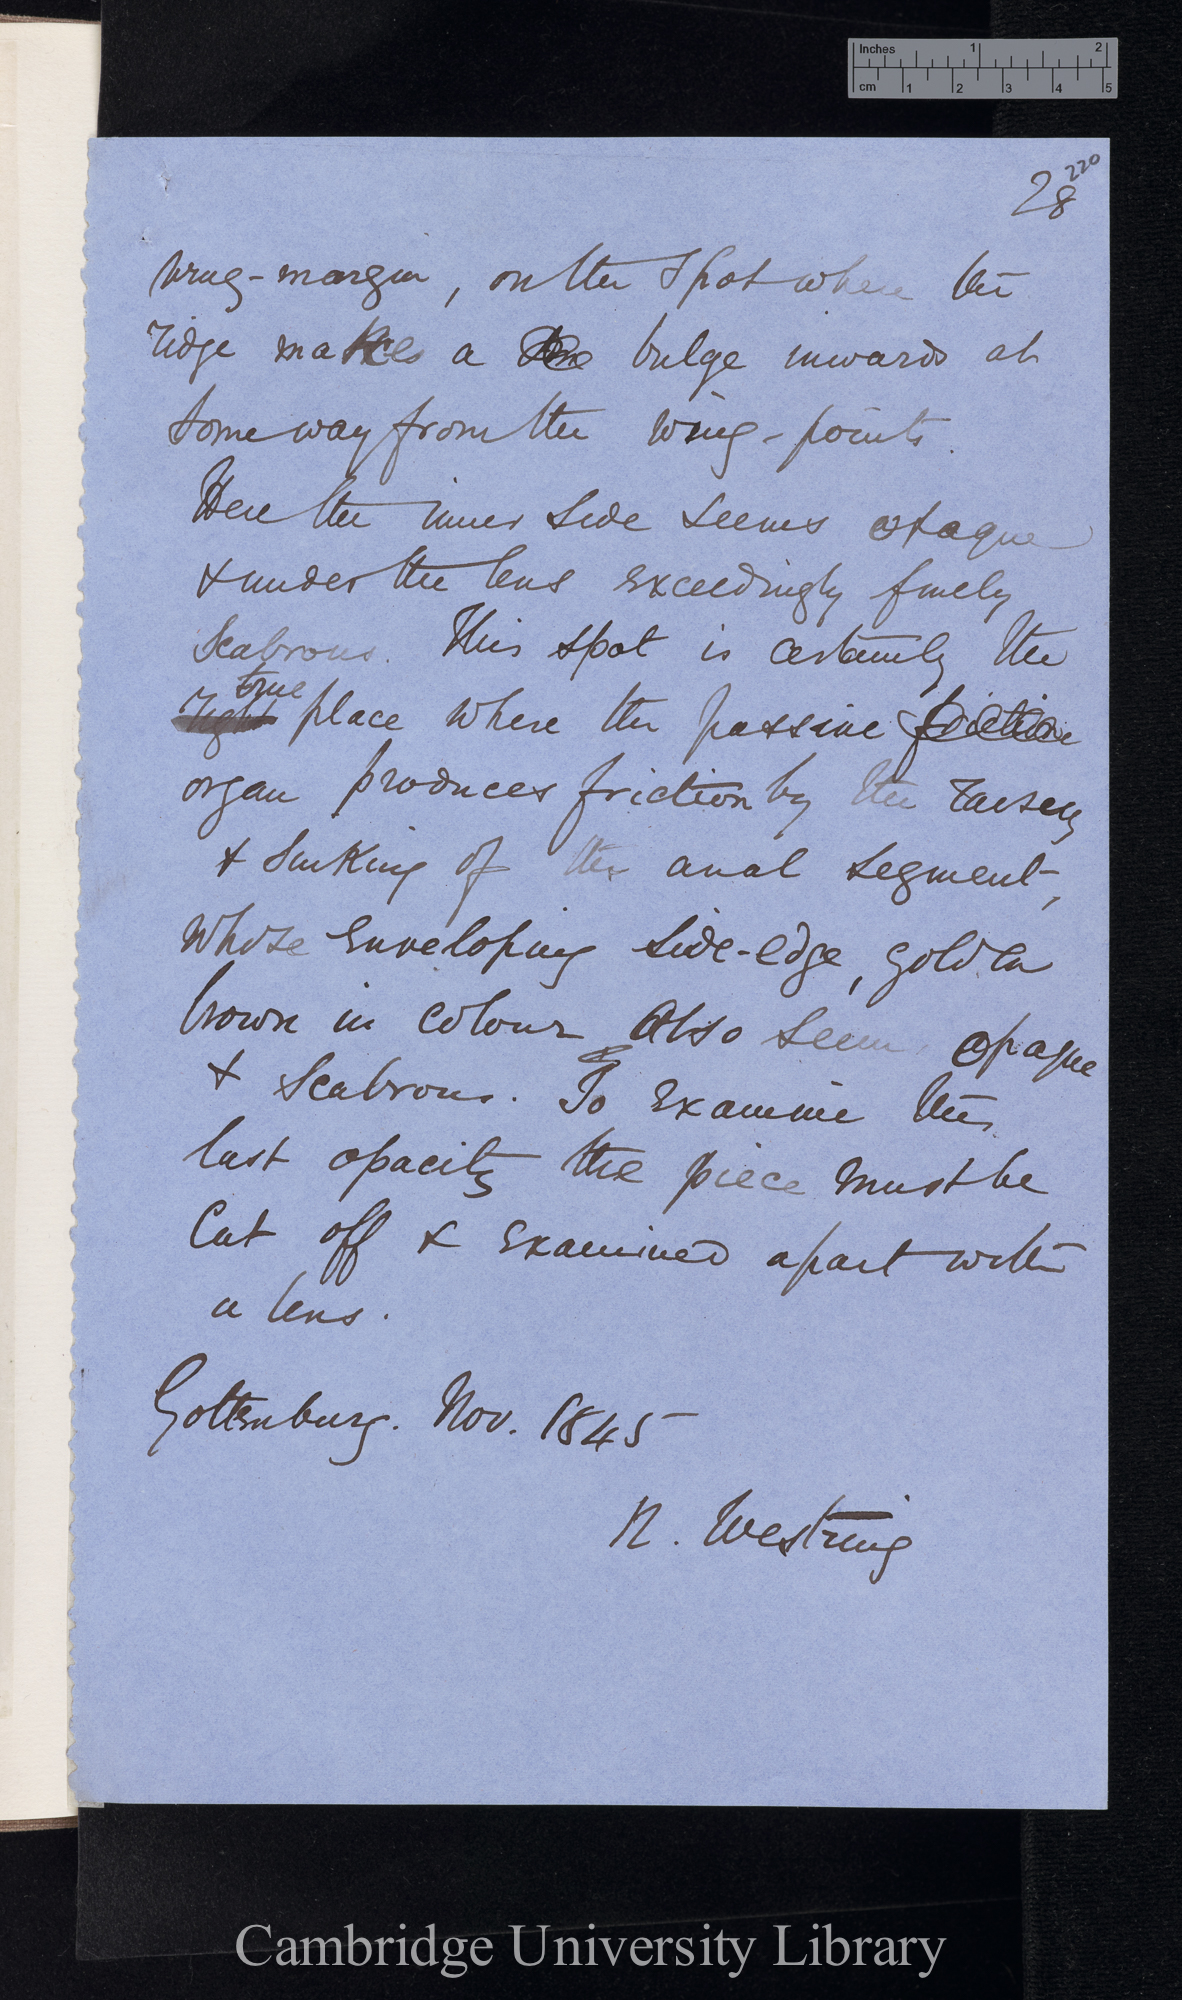 Inches 1 2
cm 1 2 3 4 5
220
28
wing-margin, on the spot where the
ridge makes a bulge inwards at
some way from the wing-points.
Here the inner side seems opaque
& under the lens exceedingly finely
scabrous. This spot is certainly the
true
right place where the passive friction
organ produces friction by the raising
& sinking of the anal segment,
whose enveloping side-edge, golden
brown in colour also seem opaque
& scabrous. To examine this
last opacity the piece must be
cut off & examined apart with
a lens.
Gottenburg. Nov. 1845
N. Westring
Cambridge University Library